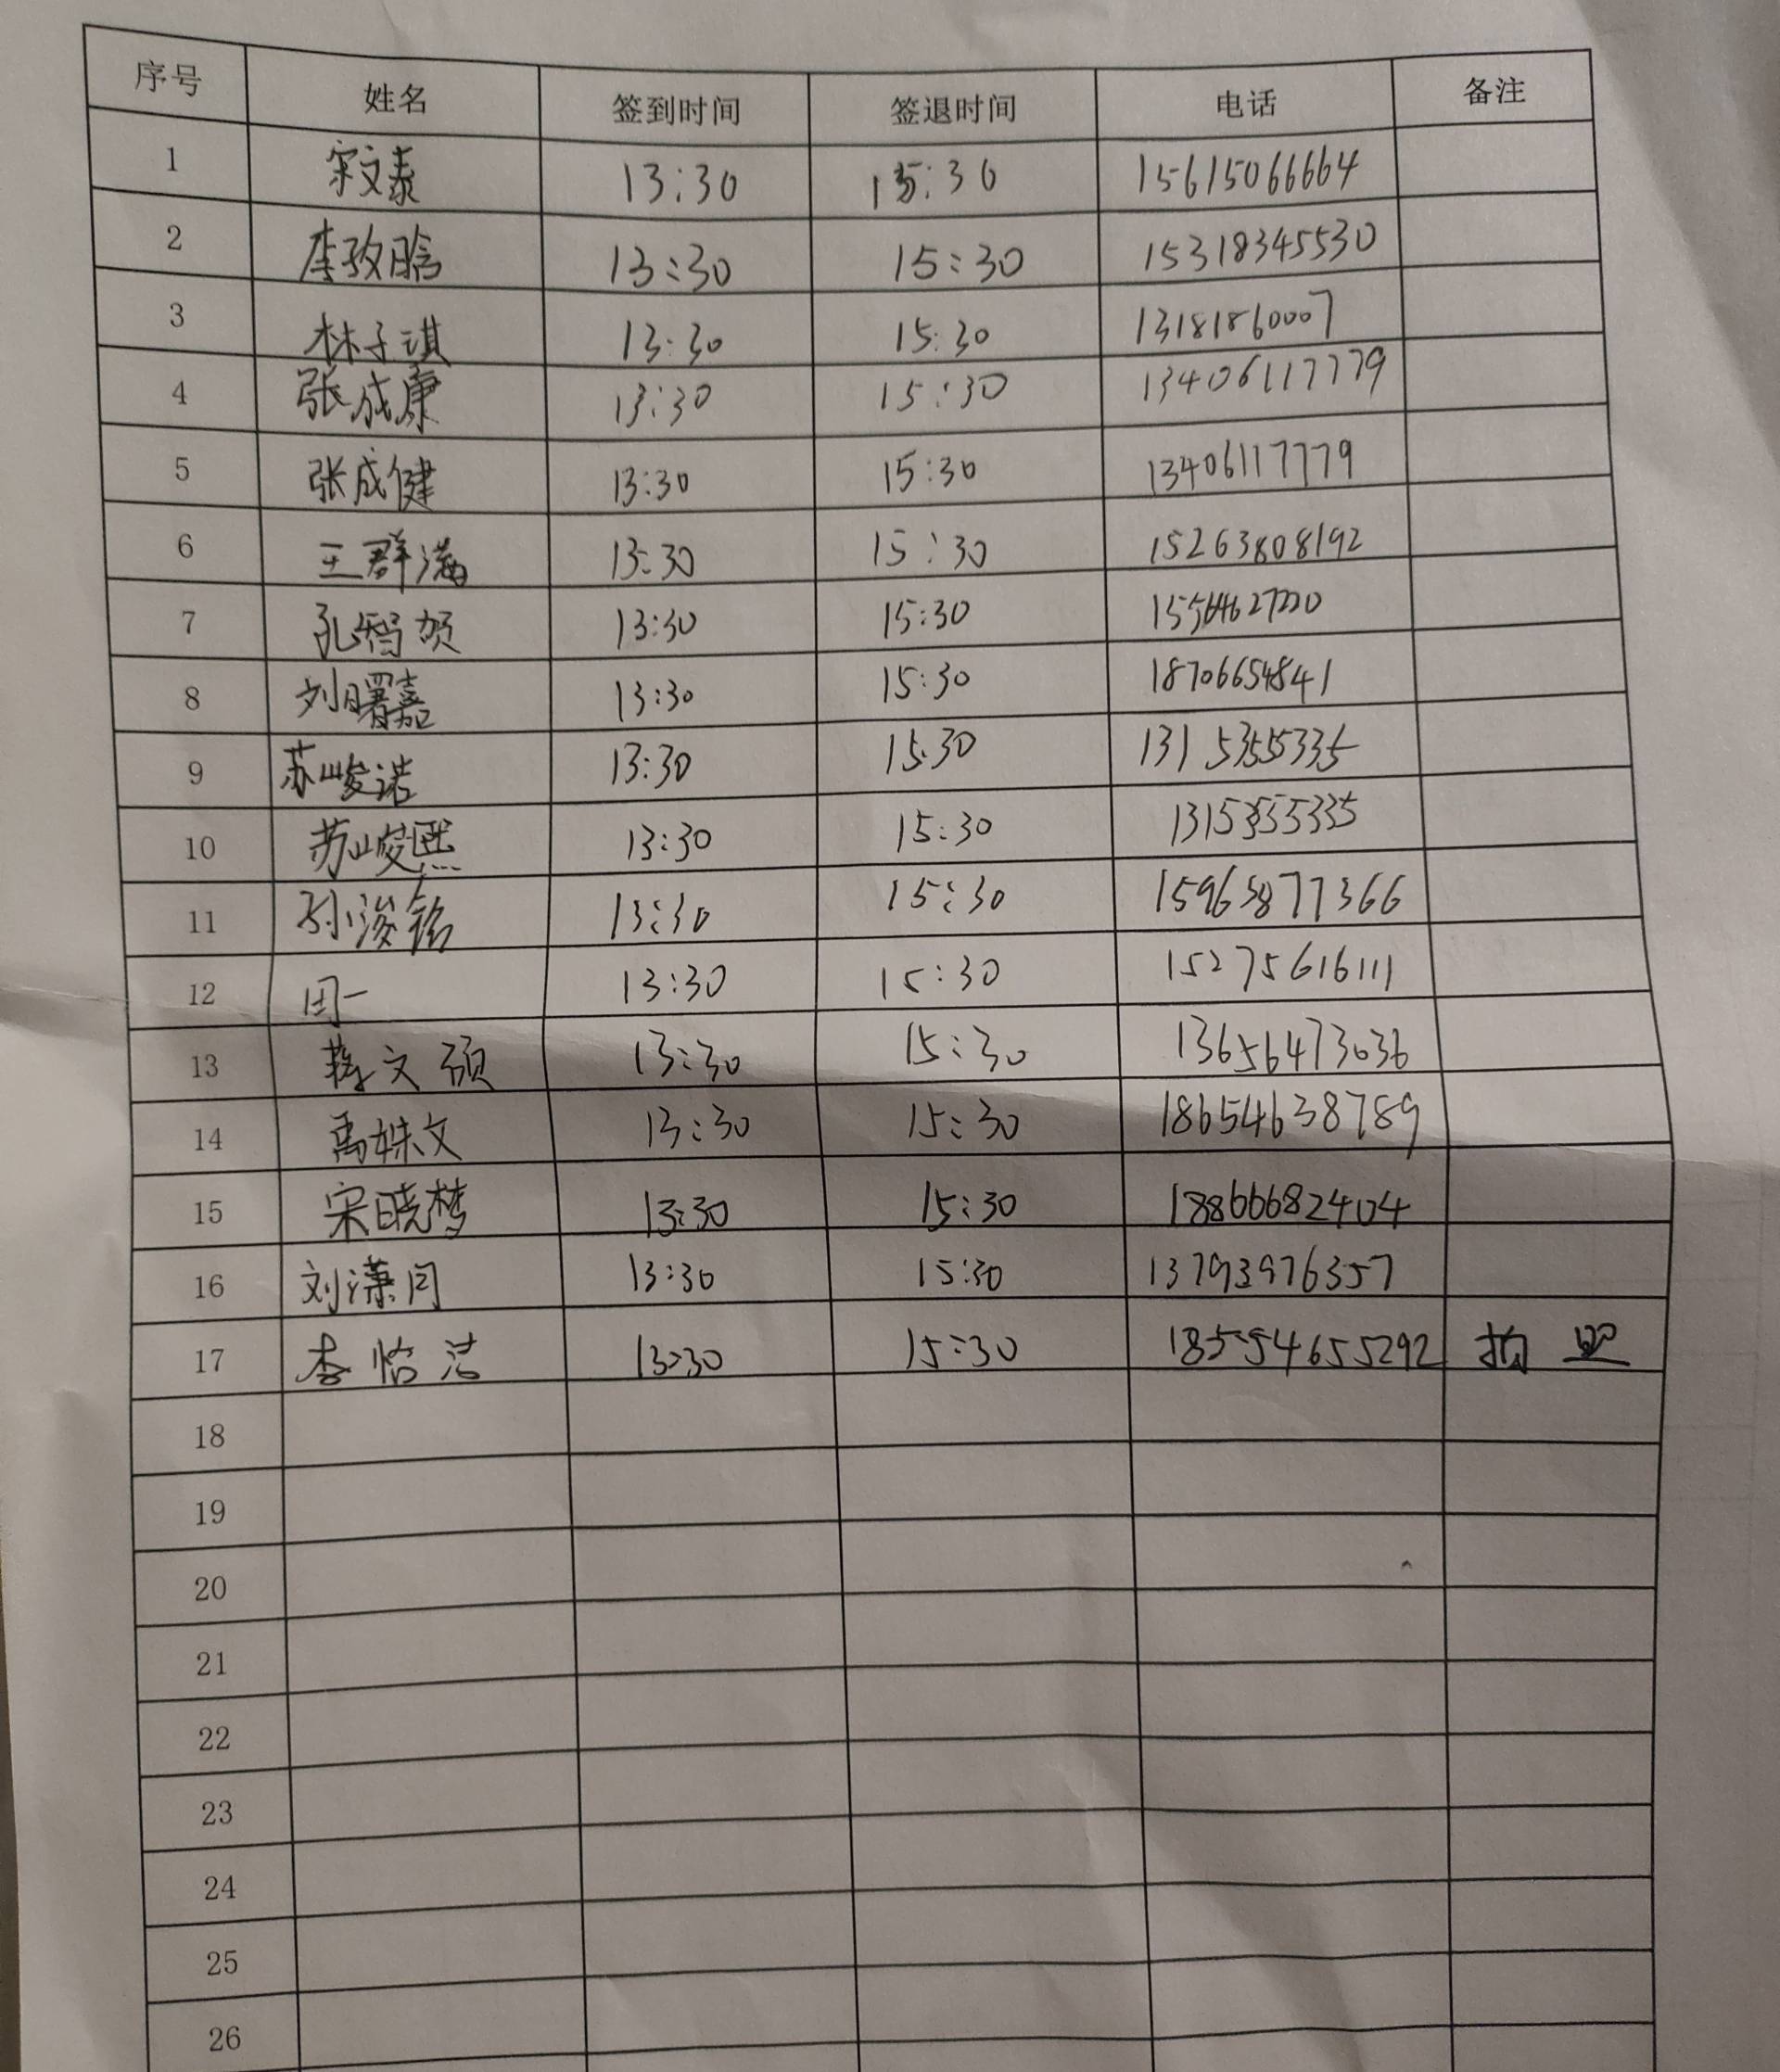 序号 姓名 签到时间 签退时间 电话 备注
1 宋文泰 13:30 15:30 15615066664
2 李孜晗 13:30 15:30 15318345530
3 林子淇 13:30 15:30 13181860007
4 张成康 13:30 15:30 13406117779
5 张成健 13:30 15:30 13406117779
6 王群满 13:30 15:30 15263808192
7 孔智贺 13:30 15:30
8 刘曙嘉 13:30 15:30 18706654841
9 苏峻诺 13:30 15:30 13153555335
10 苏峻熙 13:30 15:30 13153555335
11 孙浚铭 13:30 15:30 15963877366
12 田一 13:30 15:30 15275616111
13 蒋文硕 13:30 15:30 13656473636
14 禹姝文 13:30 15:30 18654638789
15 宋晓梦 13:30 15:30 18866682404
16 刘潇闫 13:30 15:30 13793976357
17 李怡洁 13:30 15:30 18554655292
18
19
20
21
22
23
24
25
26